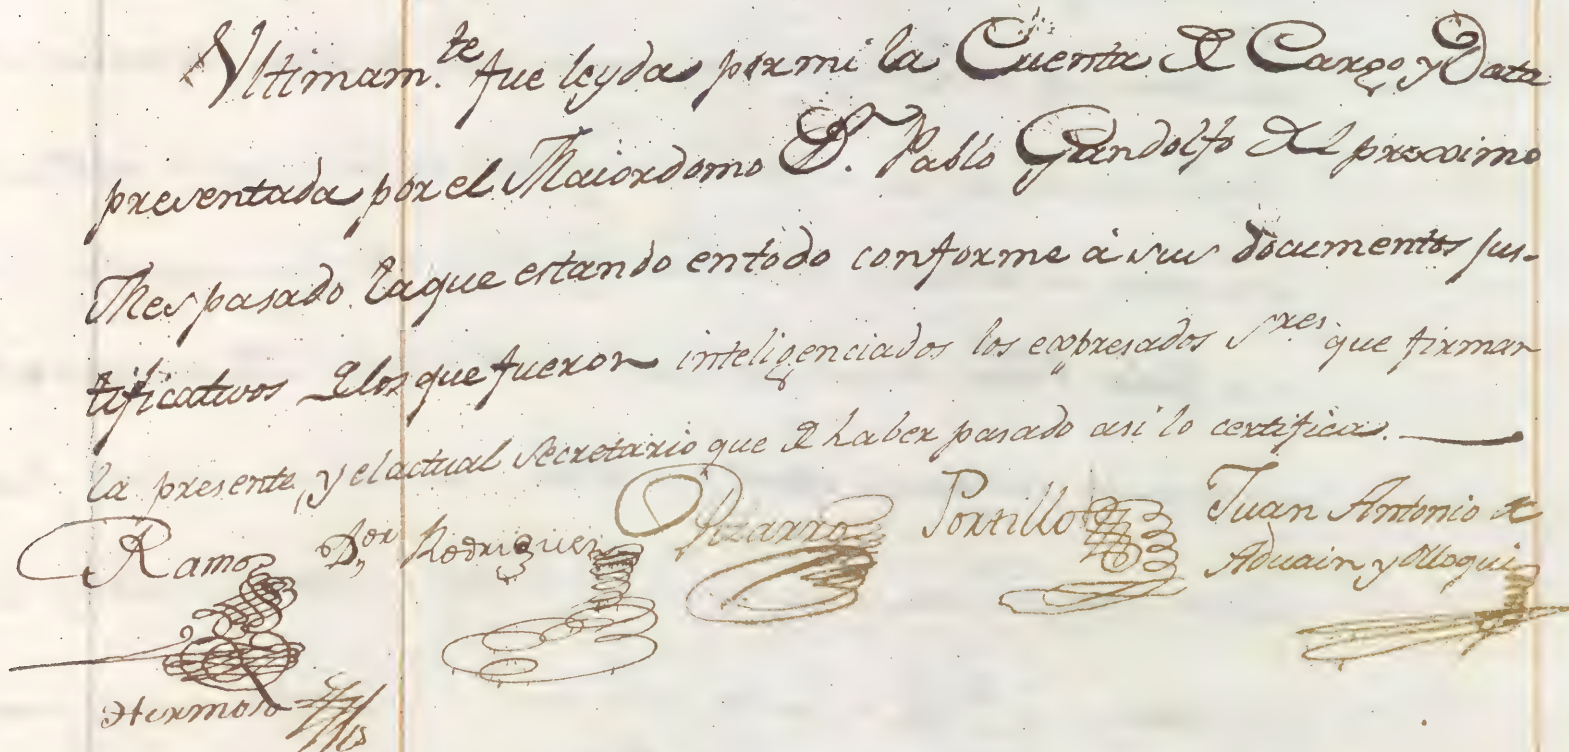 Ultimam.te fue leyda por mi la Cuenta de Cargo y Data
presentada por el Maiordomo D.n Pablo Gandolfo del proximo
Mes pasado. la que estando en todo conforme á sus documentos jus-
tificativos de los que fueron inteligenciados los expresados S.res que firman
la presente, y el actual Secretario que de haber pasado asi lo certifica.
Ramos D.or Rodriguez Pizarro Portillo Juan Antonio de
Aduain y Olloqui
Hermoso